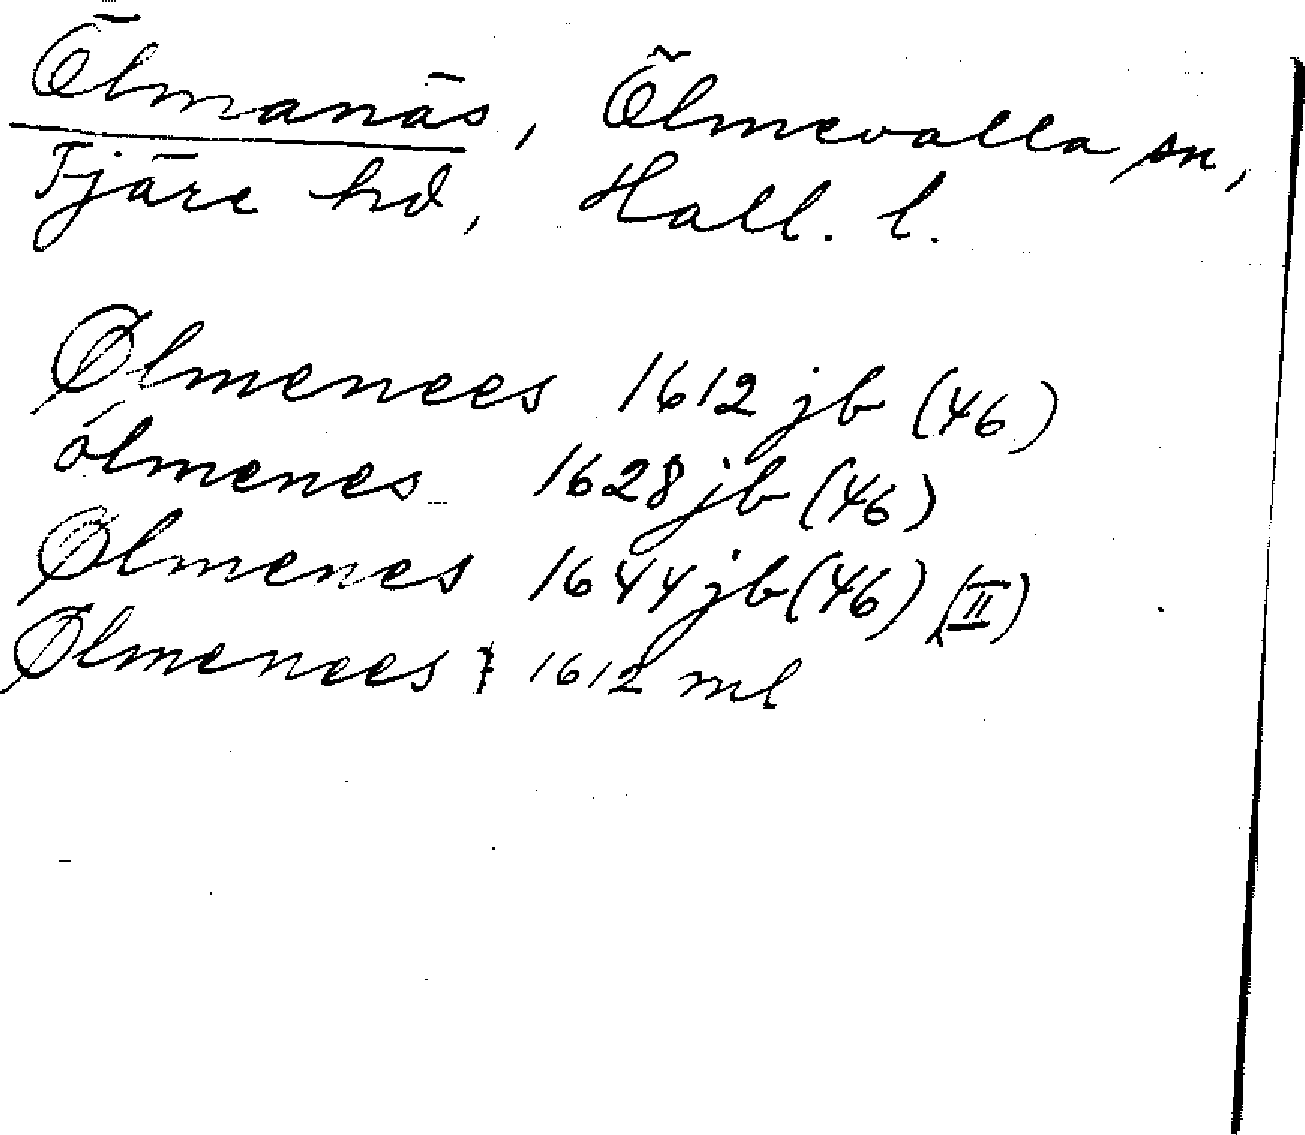 Ölmanäs, Ölmevalla sn,
Fjäre hd, Hall. l.
Ølmenees 1612 jb (46)
ólmenes 1628 jb (46)
Ølmenes 1644 jb (46) (II)
Ølmenees } 1612 ml